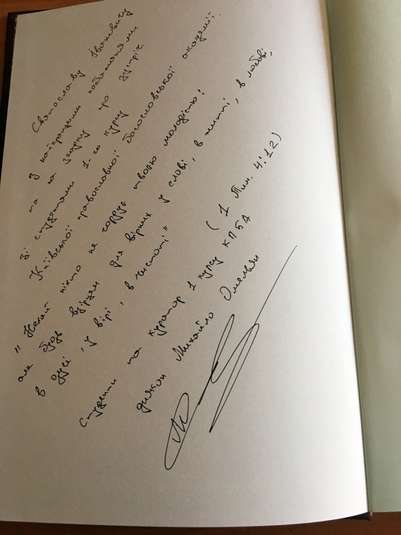 Святославу Івановичу
з найкращими побажаннями
та на згадку про зустріч
зі студентами 1-го курсу
Київської православної богословської академії.
"Нехай ніхто не гордує твоєю молодістю!
але будь взірцем для вірних у слові, в житті, в любові,
в дусі, у вірі, в чистоті"
(1 Тим. 4:12)
студенти та куратор 1 курсу КПБА
диякон Михайло Омельян